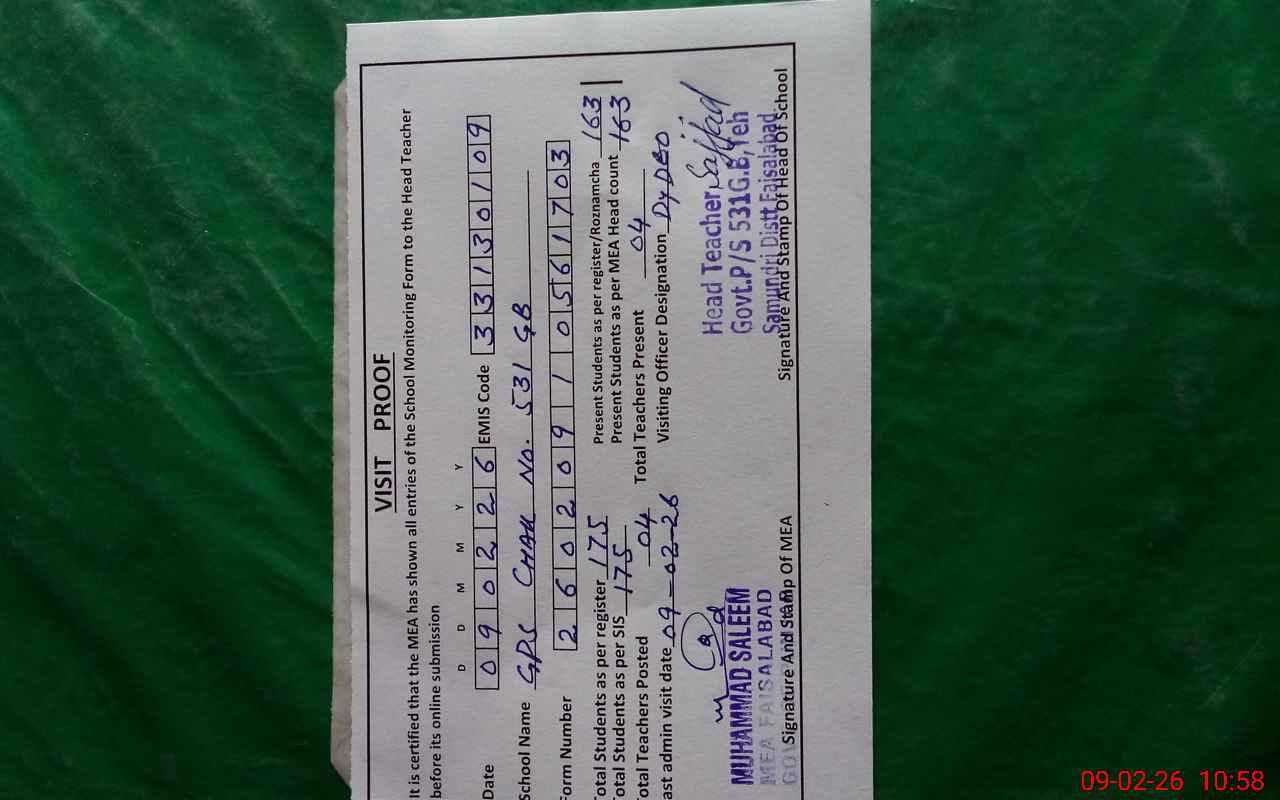 VISIT PROOF
It is certified that the MEA has shown all entries of the School Monitoring Form to the Head Teacher
before its online submission
D D M M Y Y
Date 0 9 0 2 2 6 EMIS Code 3 3 1 3 0 1 0 9
School Name GPS CHAK NO. 531 GB
Form Number 2 6 0 2 0 9 1 1 0 5 6 1 7 0 3
Total Students as per register 175 Present Students as per register/Roznamcha 163
Total Students as per SIS 175 Present Students as per MEA Head count 163
Total Teachers Posted 04 Total Teachers Present 04
ast admin visit date 09-02-26 Visiting Officer Designation DyDEO
MUHAMMAD SALEEM
MEA FAISALABAD
Signature And Stamp Of MEA
Sajjad
Head Teacher
Govt.P/S 531G.B,Teh
Samundri Distt Faisalabad
Signature And Stamp Of Head Of School
09-02-26 10:58